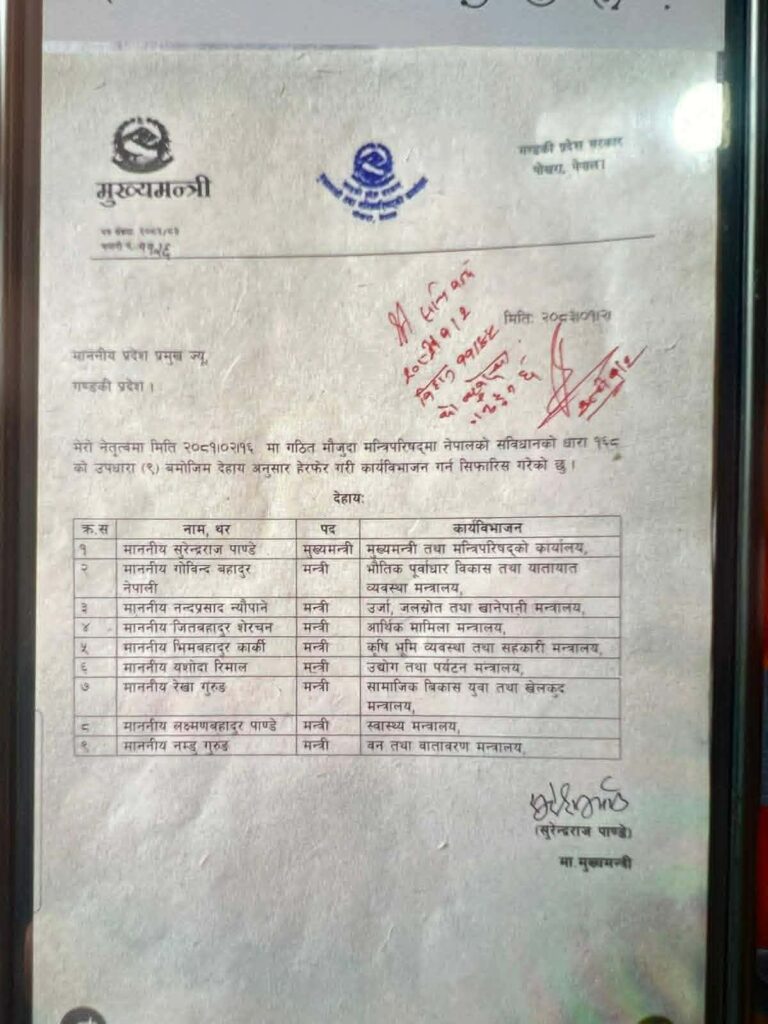 मुख्यमन्त्री
गण्डकी प्रदेश सरकार
पोखरा, नेपाल।
मिति: २०८३।०१।२
माननीय प्रदेश प्रमुख ज्यू,
गण्डकी प्रदेश ।
मेरो नेतृत्वमा मिति २०८१।०२।१६ मा गठित मौजुदा मन्त्रिपरिषद्‌मा नेपालको संविधानको धारा १६८
को उपधारा (९) बमोजिम देहाय अनुसार हेरफेर गरी कार्यविभाजन गर्न सिफारिस गरेको छु ।
देहायः
क्र.स नाम, थर पद कार्यविभाजन
१ माननीय सुरेन्द्रराज पाण्डे मुख्यमन्त्री मुख्यमन्त्री तथा मन्त्रिपरिषद्‌को कार्यालय,
२ माननीय गोविन्द बहादुर नेपाली मन्त्री भौतिक पूर्वाधार विकास तथा यातायात व्यवस्था मन्त्रालय,
३ माननीय नन्दप्रसाद न्यौपाने मन्त्री उर्जा, जलस्रोत तथा खानेपानी मन्त्रालय,
४ माननीय जितबहादुर शेरचन मन्त्री आर्थिक मामिला मन्त्रालय,
५ माननीय भिमबहादुर कार्की मन्त्री कृषि भूमि व्यवस्था तथा सहकारी मन्त्रालय,
६ माननीय यशोदा रिमाल मन्त्री उद्योग तथा पर्यटन मन्त्रालय,
७ माननीय रेखा गुरुङ मन्त्री सामाजिक विकास युवा तथा खेलकुद मन्त्रालय,
८ माननीय लक्ष्मणबहादुर पाण्डे मन्त्री स्वास्थ्य मन्त्रालय,
९ माननीय नम्डु गुरुङ मन्त्री वन तथा वातावरण मन्त्रालय,
(सुरेन्द्रराज पाण्डे)
मा.मुख्यमन्त्री